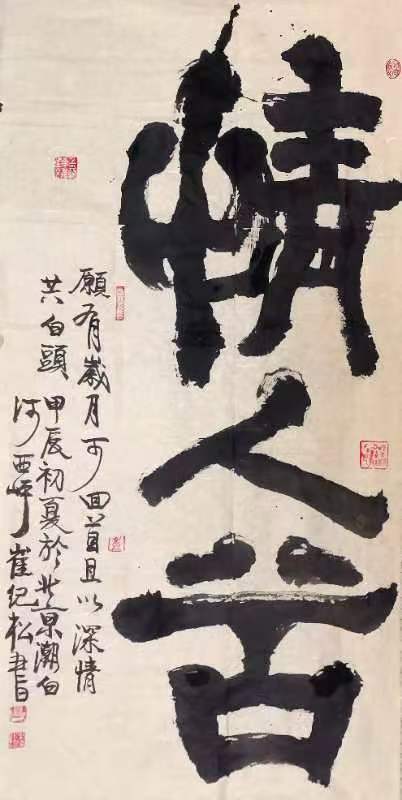 情人
願有歲月可回首且以深情
共白頭 甲辰初夏於北京潮白
河西岸崔纪松書